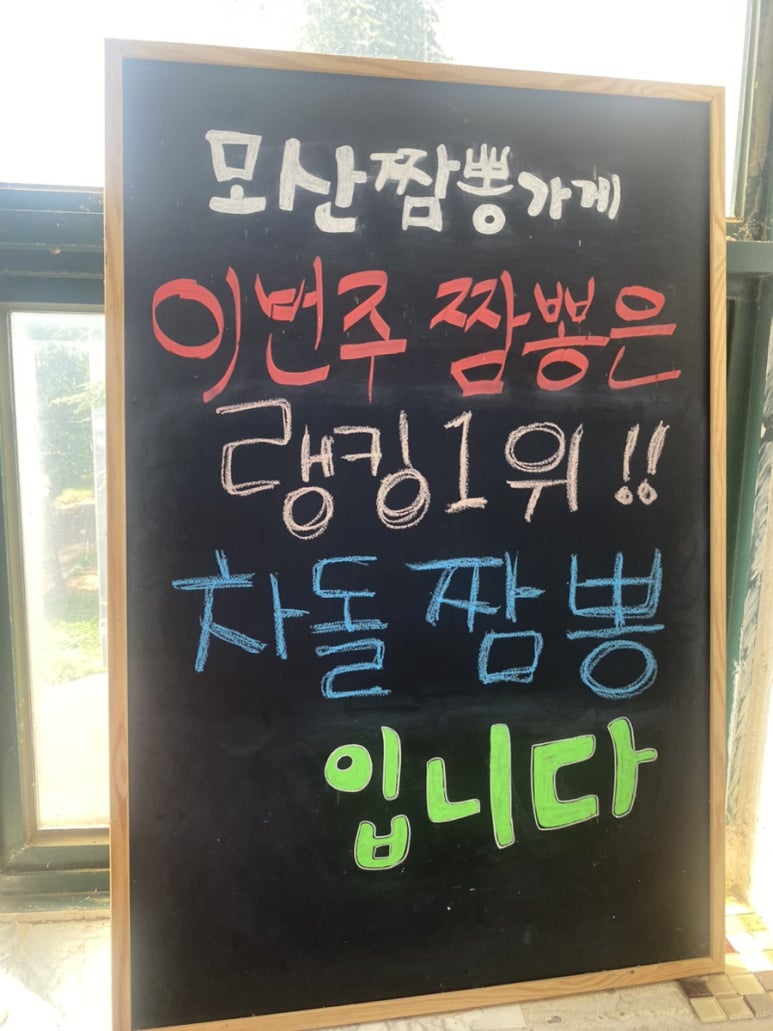 모산짬뽕가게
이번주 짬뽕은
랭킹1위!!
차돌짬뽕
입니다